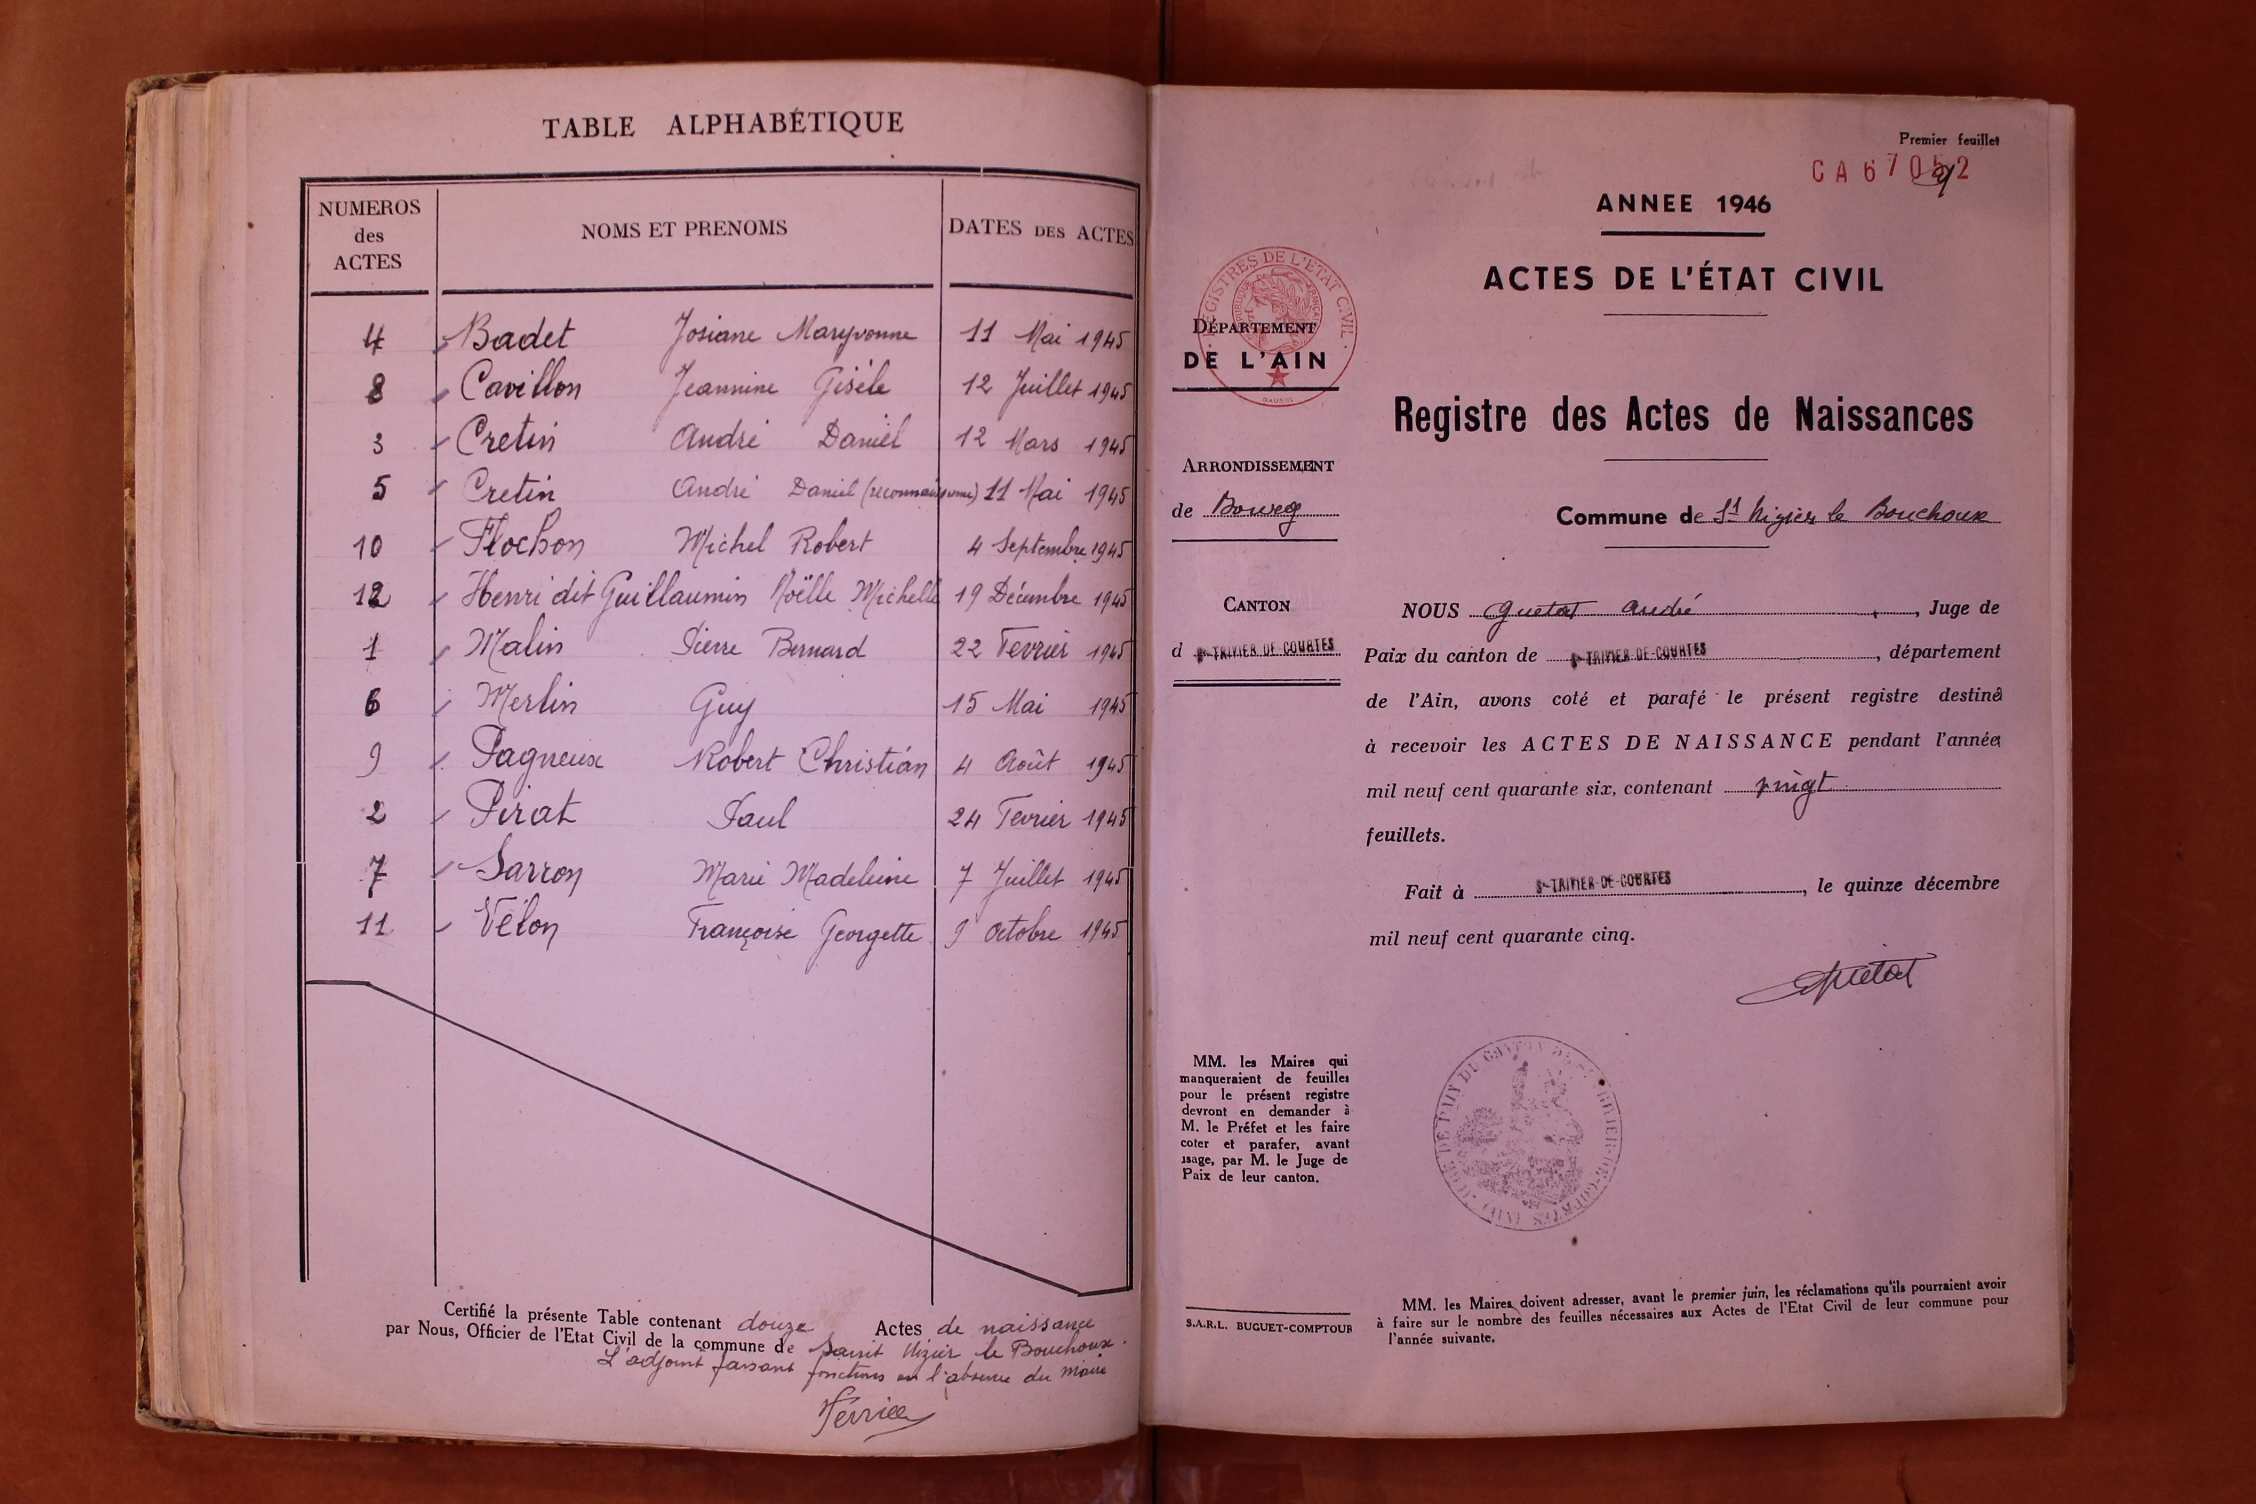 TABLE ALPHABÉTIQUE
NUMEROS des ACTES NOMS ET PRENOMS DATES DES ACTES
4 Badet Josiane Maryvonne 11 Mai 1945
8 Cavillon Jeannine Gisèle 12 Juillet 1945
3 Cretin André Daniel 12 Mars 1945
5 Cretin André Daniel (reconnaissance) 11 Mai 1945
10 Flochon Michel Robert 4 Septembre 1945
12 Henri dit Guillaumin Noëlle Michelle 19 Décembre 1945
1 Malin Pierre Bernard 22 Fevrier 1945
6 Merlin Guy 15 Mai 1945
9 Pagneux Robert Christian 4 Août 1945
2 Pirat Paul 24 Fevrier 1945
7 Sarron Marie Madeleine 7 Juillet 1945
11 Vélon Françoise Georgette 9 Octobre 1945
Certifié la présente Table contenant douze Actes de naissance
par Nous, Officier de l'Etat Civil de la commune de Saint Nizier le Bouchoux.
L'adjoint faisant fonctions en l'absence du Maire
Premier feuillet
CA 67052
ANNEE 1946
ACTES DE L'ÉTAT CIVIL
REGISTRES DE L'ETAT CIVIL
DÉPARTEMENT
DE L'AIN
Registre des Actes de Naissances
ARRONDISSEMENT
de Bourg
Commune de St Nizier le Bouchoux
CANTON
d St-TRIVIER-DE-COURTES
NOUS Guetat André, Juge de
Paix du canton de St-TRIVIER-DE-COURTES, département
de l'Ain, avons coté et parafé le présent registre destiné
à recevoir les ACTES DE NAISSANCE pendant l'année
mil neuf cent quarante six, contenant vingt
feuillets.
Fait à St-TRIVIER-DE-COURTES, le quinze décembre
mil neuf cent quarante cinq.
Guetat
MM. les Maires qui
manqueraient de feuilles
pour le présent registre
devront en demander à
M. le Préfet et les faire
coter et parafer, avant
usage, par M. le Juge de
Paix de leur canton.
S.A.R.L. BUGUET-COMPTOUR
MM. les Maires doivent adresser, avant le premier juin, les réclamations qu'ils pourraient avoir
à faire sur le nombre des feuilles nécessaires aux Actes de l'Etat Civil de leur commune pour
l'année suivante.